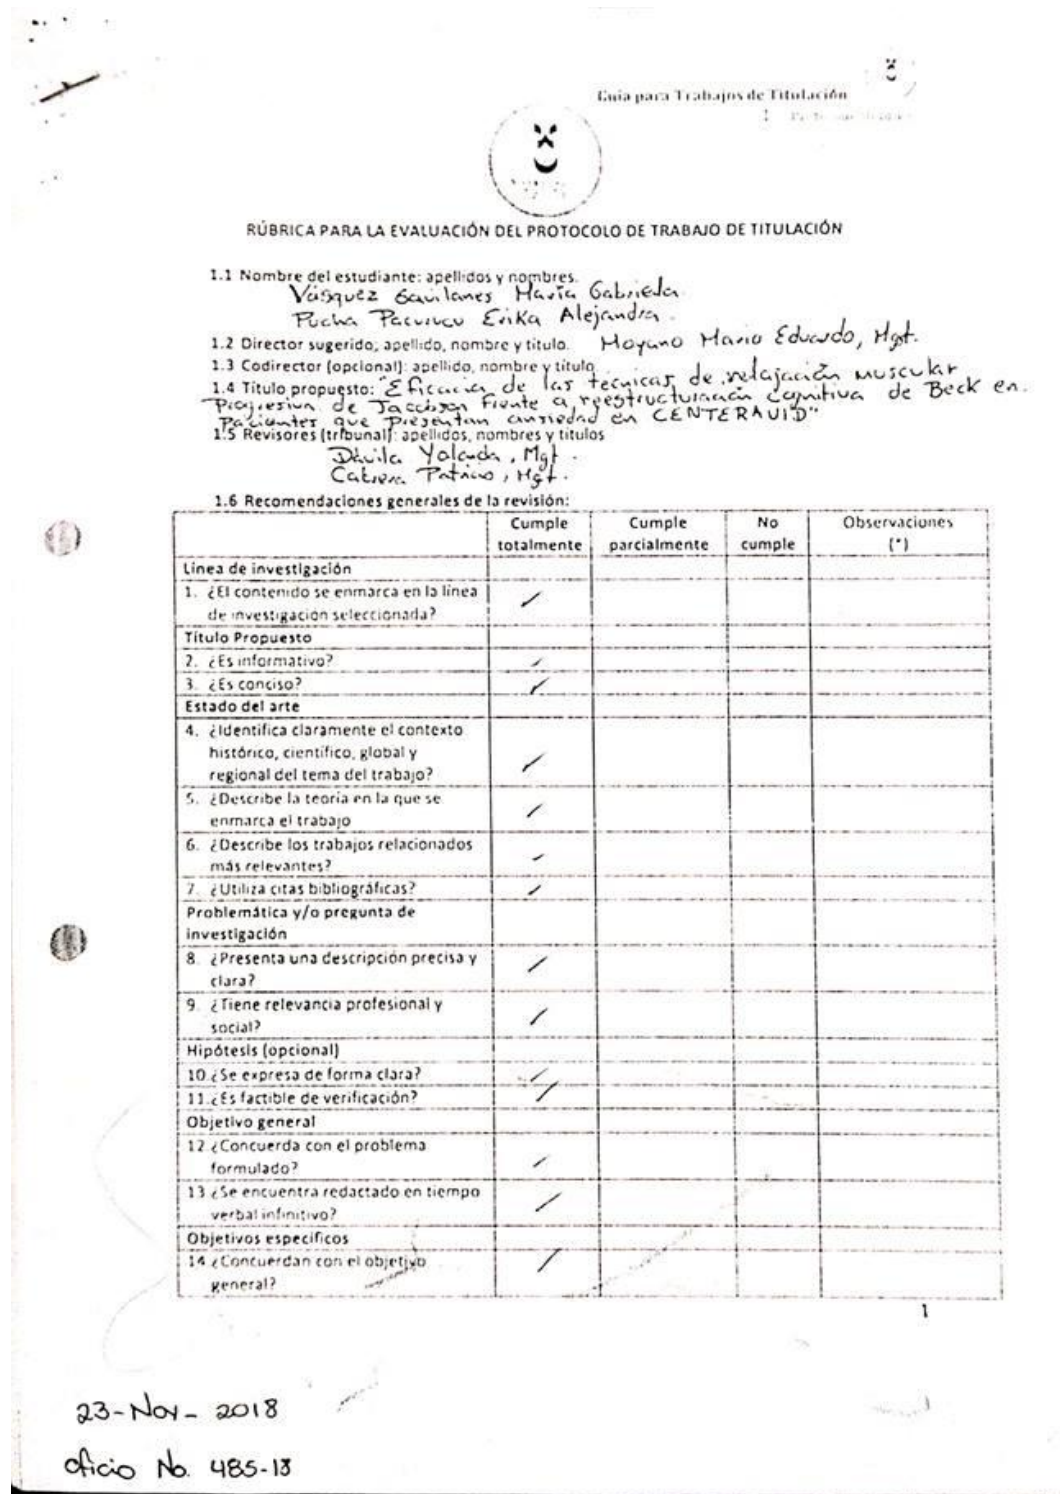 Guía para Trabajos de Titulación
RÚBRICA PARA LA EVALUACIÓN DEL PROTOCOLO DE TRABAJO DE TITULACIÓN
1.1 Nombre del estudiante: apellidos y nombres.
Vásquez Gavilanes María Gabriela.
Pucha Erika Alejandra.
1.2 Director sugerido; apellido, nombre y título. Moyano Mario Eduardo, Mgt.
1.3 Codirector (opcional): apellido, nombre y título
1.4 Título propuesto: "Eficacia de las tecnicas de relajación muscular
Progresiva de Jaccobson frente a reestructuración cognitiva de Beck en
Pacientes que presentan ansiedad en CENTERAVID"
1.5 Revisores (tribunal): apellidos, nombres y títulos
Dávila Yolanda, Mgt.
Cabrera Patricio, Mgt.
1.6 Recomendaciones generales de la revisión:
Cumple totalmente Cumple parcialmente No cumple Observaciones (*)
Línea de investigación
1. ¿El contenido se enmarca en la línea
de investigación seleccionada?
Título Propuesto
2. ¿Es informativo?
3. ¿Es conciso?
Estado del arte
4. ¿Identifica claramente el contexto
histórico, científico, global y
regional del tema del trabajo?
5. ¿Describe la teoría en la que se
enmarca el trabajo
6. ¿Describe los trabajos relacionados
más relevantes?
7. ¿Utiliza citas bibliográficas?
Problemática y/o pregunta de
investigación
8. ¿Presenta una descripción precisa y
clara?
9. ¿Tiene relevancia profesional y
social?
Hipótesis (opcional)
10.¿Se expresa de forma clara?
11.¿Es factible de verificación?
Objetivo general
12.¿Concuerda con el problema
formulado?
13.¿Se encuentra redactado en tiempo
verbal infinitivo?
Objetivos específicos
14.¿Concuerdan con el objetivo
general?
1
23-Nov-2018
oficio No. 485-18